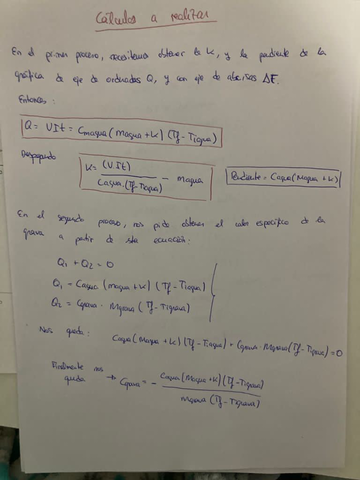 Cálculos a realizar
En el primer proceso, necesitamos obtener la K, y la pendiente de la
gráfica de eje de ordenadas Q, y con eje de abscisas ΔE.
Entonces:
Q = VIt = Cagua (magua + K) (Tf - Tiagua)
Despejando
K = (VIt) / Cagua · (Tf - Tiagua) - magua
Pendiente = Cagua (Magua + K)
En el segundo proceso, nos pide obtener el calor específico de la
grava a partir de esta ecuación:
Q1 + Q2 = 0
Q1 = Cagua (magua + K) (Tf - Tiagua)
Q2 = Cgrava · Mgrava (Tf - Tigrava)
Nos queda:
Cagua (Magua + K) (Tf - Tiagua) + Cgrava · Mgrava (Tf - Tigrava) = 0
Finalmente nos
queda → Cgrava = - Cagua (Magua + K) (Tf - Tiagua) / Mgrava (Tf - Tigrava)